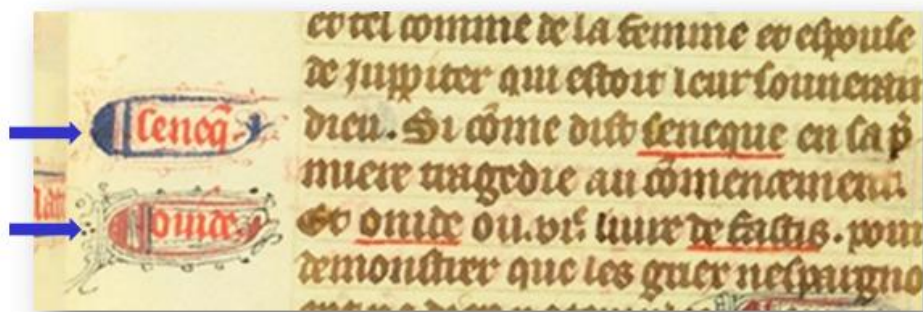 et tel comme de la femme et espouse
de Juppiter qui estoit leur souuerain
Seneq̄
dieu. Si cōme dist seneque en sa p̄
miere tragedie au cōmencement.
ouide
Et ouide ou .vi.ͤ liure de fastis. pour
demonstrer que les grier nespargno